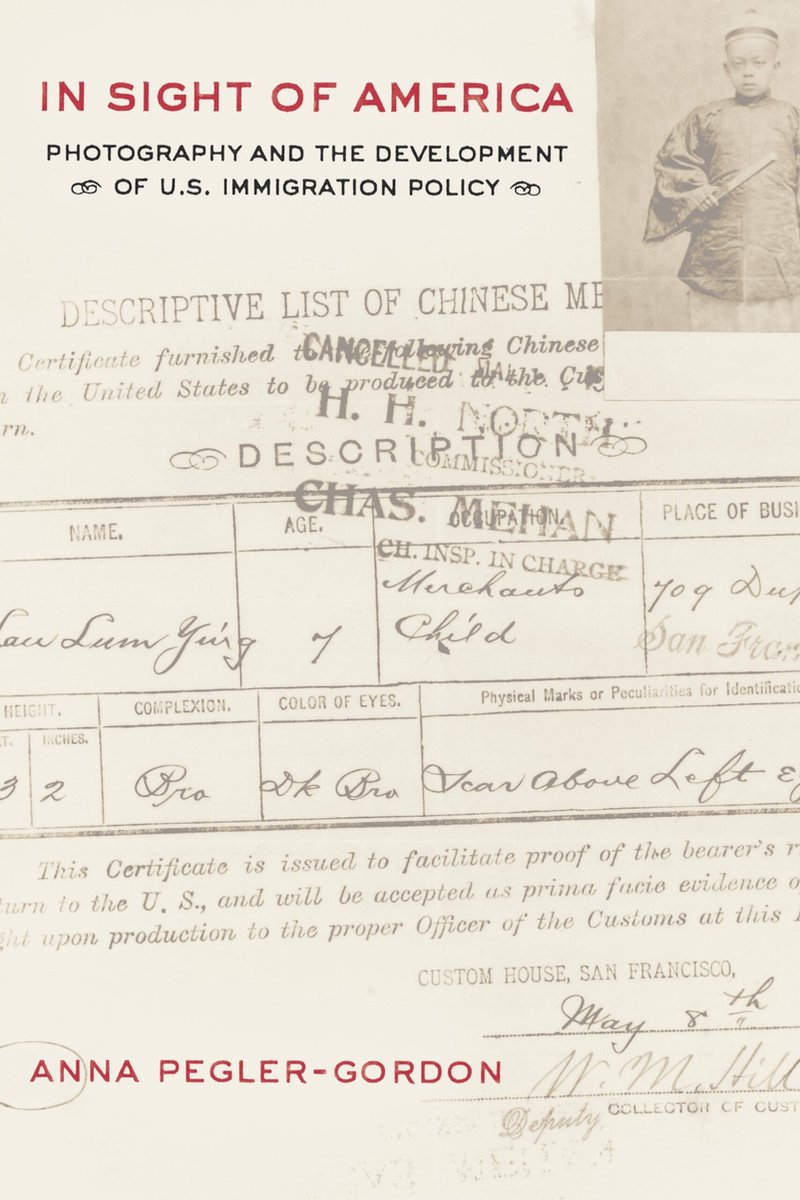 IN SIGHT OF AMERICA
PHOTOGRAPHY AND THE DEVELOPMENT
OF U.S. IMMIGRATION POLICY
DESCRIPTIVE LIST OF CHINESE ME
Certificate furnished t following Chinese
the United States to be produced to the Cus
rn.
CANCELLED
H. H. NORTH
COMMISSIONER
DESCRIPTION
CHAS. MEHAN
CH. INSP. IN CHARGE
NAME. AGE. OCCUPATION. PLACE OF BUSI
Lau Lum Ying 7 Merchants 709 Dup
Child San Fran
HEIGHT. COMPLEXION. COLOR OF EYES. Physical Marks or Peculiarities for Identificatio
T. INCHES.
3 2 Bro Dk Bro Scar above Left Ey
This Certificate is issued to facilitate proof of the bearer's r
turn to the U. S., and will be accepted as prima facie evidence o
ght upon production to the proper Officer of the Customs at this
CUSTOM HOUSE, SAN FRANCISCO,
May 8th
ANNA PEGLER-GORDON
W. M. Hill
Deputy COLLECTOR OF CUST